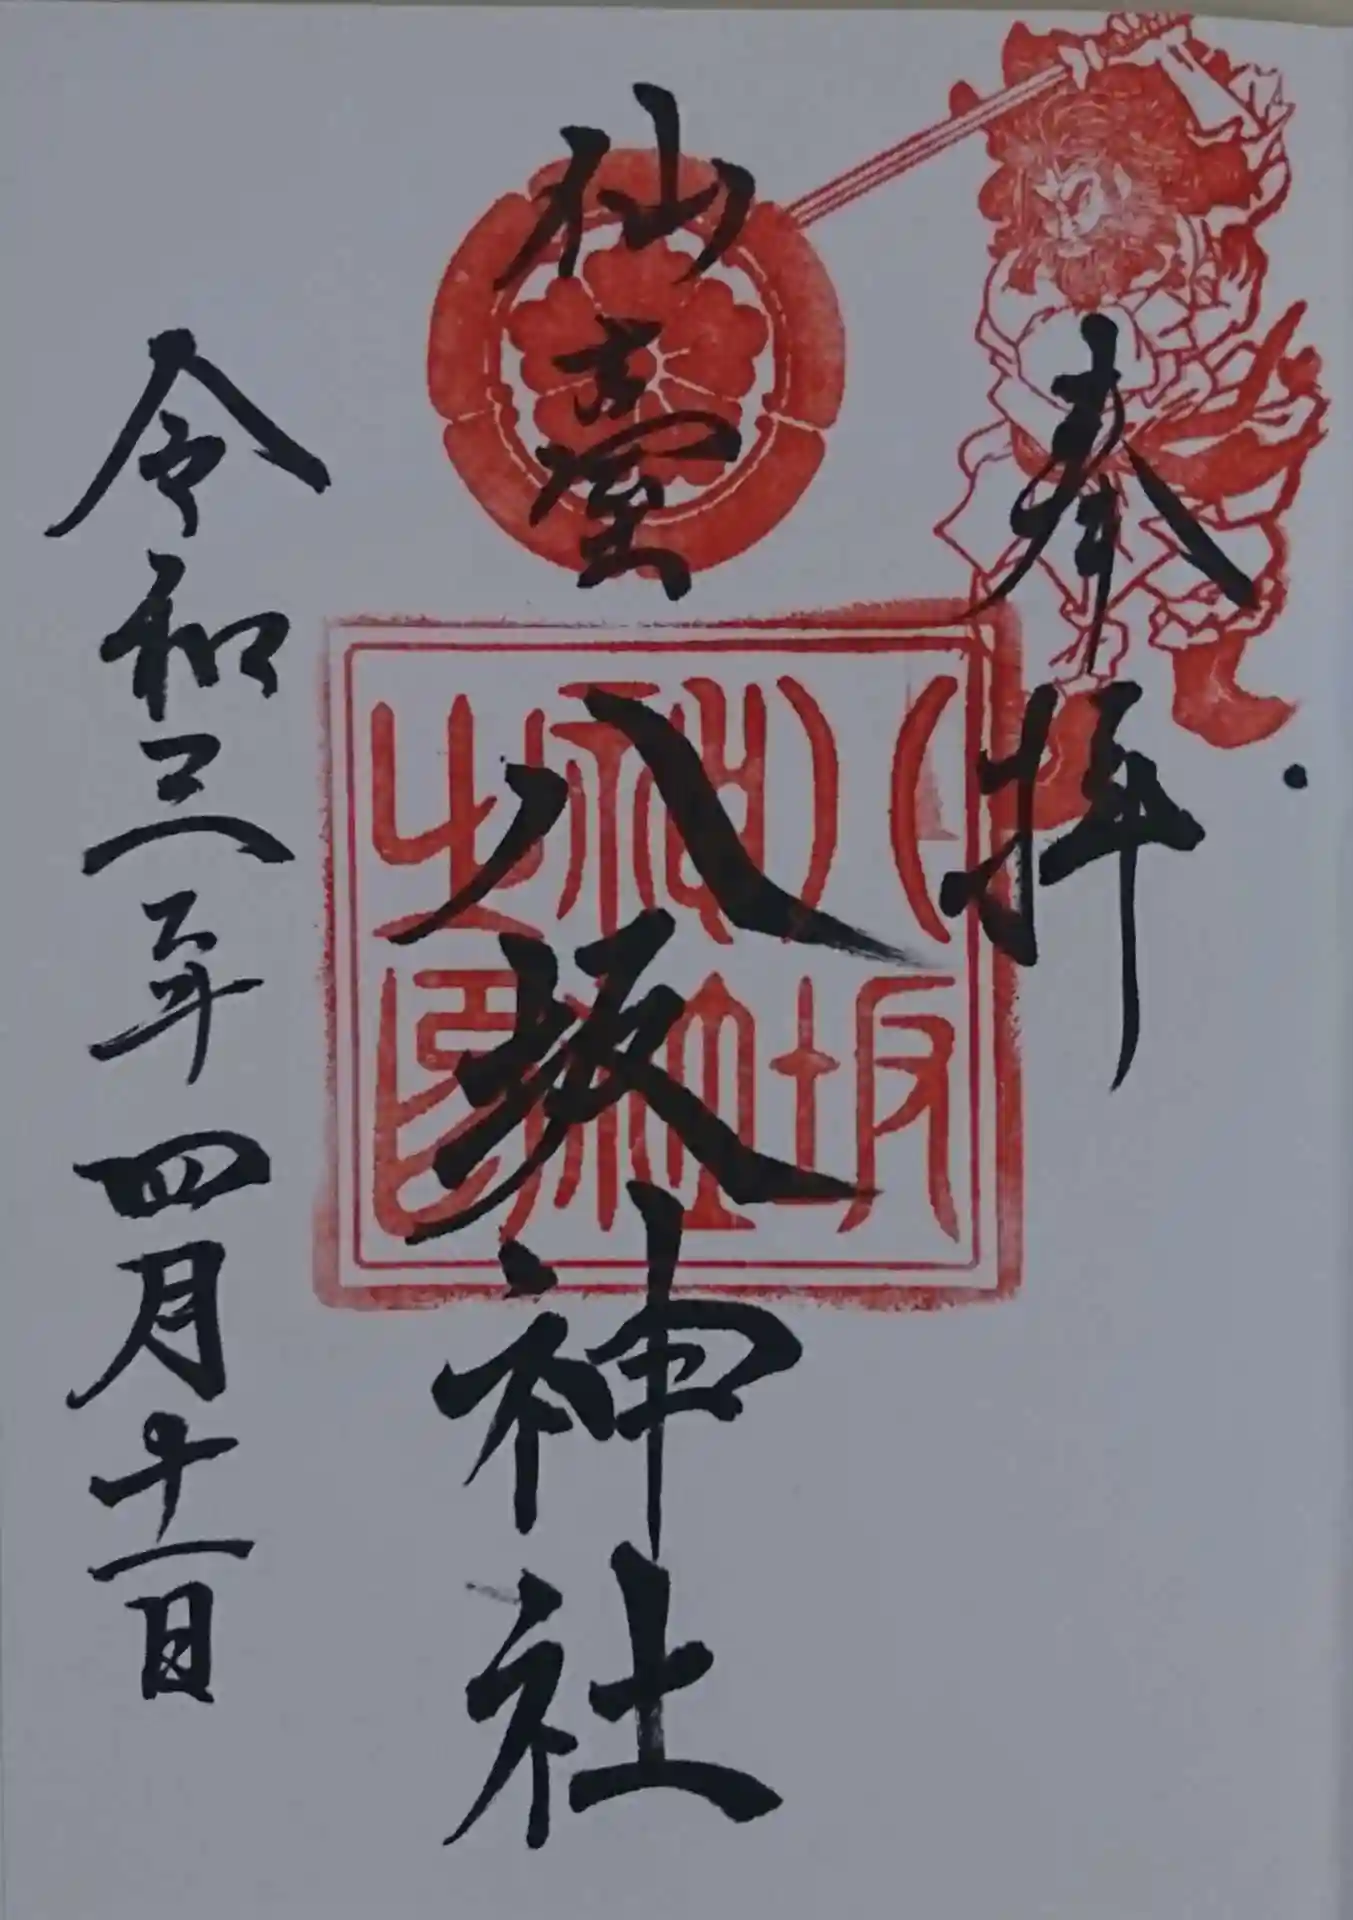 奉拝
仙臺
八坂神社
八坂
神社
之印
令和三年四月十一日